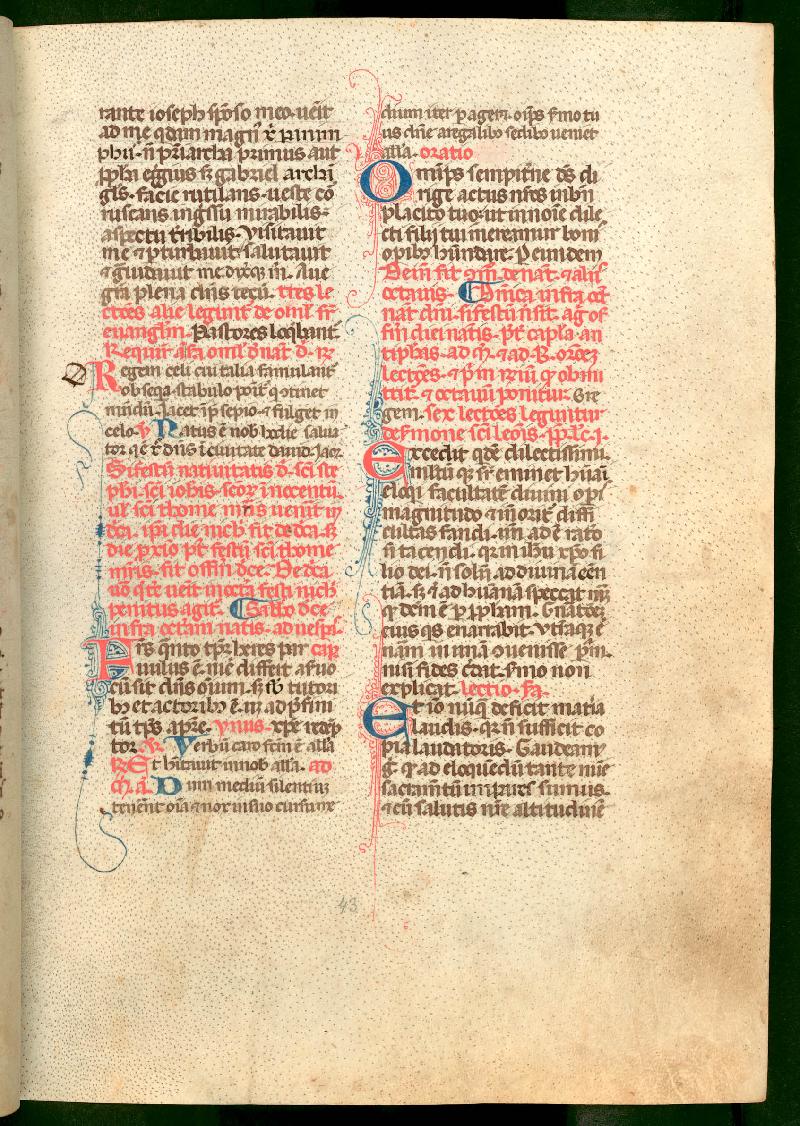 rante ioseph sṗo͞so meo. ue͞it
ad me q͞dam magn͞
ph͞i. n͞ p͞riarcha primus aut
p͞pha eg͞gius s͞ gabriel archi
gl͞s. facie rutilans. ueste co͞
ruscans. ingssu mirabilis.
aspectu t͞ribilis. visitauit
me ⁊ ptirbauit. salutauit
⁊ giudauit me. dix͞q͞ m͞. Aue
gr͞a plena dn͞s tecu͞. tres le
ct͞oes alie leguntur de omil͞ sr͞
euangl͞m. Pastores loq͞bant
Requir͞
Regem celi cui talia famulant͞
obseqa. stabulo ponit͞ q͞ 9tinet
mu͞du͞. Jacet i͞ p͞sepio. ⁊ fulget in
celo. ṽ Natus e͞ nob͞ hodie salua
tor q͞ e͞ x͞ dn͞s i͞ ciuitate dauid. Jac͞.
Si festu͞ natiuitatis d͞. sc͞i ste
phi. sc͞i ioh͞is. sco͞r i͞nocentu͞.
ul͞ sc͞i thome m͞ris uen͞it in
d͞ca. ip͞a die nich͞ fit de d͞ca. s͞
die p͞xio p͞t festu͞ sc͞i thome
m͞ris. fit offm͞ d͞ce. De d͞ca
u͞o q͞ ue͞it in oct͞a festi nich͞
penitus agit͞. Sab͞bo d͞ce
infra octa͞m natis. ad uesp͞.
Frs q͞nto tp͞r heres par͞ cap͞
uulus e͞. n͞ differt a s͞uo
cu͞ sit dn͞s o͞ium. s͞ sb͞ tutori
b͞ et actorib͞ e͞. u͞ ad p͞fini
tu͞ tp͞s a p͞re. ymus. xp͞e rede͞p
tor. ṽ Verbu͞ caro fc͞m e͞ all͞a
R͞ Et h͞itauit in nob͞ all͞a. ad
m͞. a͞. Dum mediu͞ silentiu͞
tene͞nt o͞ia ⁊ nox in suo cursu me
dium iter p͞ageret. o͞ips s͞mo tu
us dn͞e a regalib͞ sedib͞ ueniet
all͞a. oratio
Om͞ps sempit͞ne d͞s di
rige actus n͞ros in b͞n
placito tuo. ut in no͞ie dile
cti filij tui mereamur boni͞
opib͞ h͞undare. P eundem
Dein͞ fit 9m͞. de nat͞. ⁊ alijs
octauis. D͞nica infra oct͞
nat͞ dn͞i. si festu͞ n͞ fit͞. ag͞ of
fm͞ diei natis. p͞t capl͞a. an
tiphas. ad m͞. ⁊ ad B. or͞oez
lect͞oes. ⁊ p͞m
octauu͞ ponitur. Re
gem. sex lect͞oes leguntur
de s͞mone sc͞i leo͞is. p͞p. lc͞. i.
Excedit q͞de͞ dilectissimi.
multu͞ q͞ sr͞ eminet hu͞ai
eloq͞i facultate͞ diuini op͞i
magnitudo ⁊ in͞ orit͞ diffi
cultas fandi. un͞ ad e͞ rato
n͞ tacendi. q͞r in ih͞u xp͞o fi
lio dei. n͞ solu͞ ad diuina͞ ee͞n
tia͞. s͞ ⁊ ad hu͞ana͞ spectat n͞u͞
q͞ dc͞m e͞ p p͞pha͞m. Gn͞atoez
eius q͞s enarrabit. Vtra͞q͞ e͞
na͞m in una͞ 9uenisse p͞m.
nisi fides c͞dat. s͞mo non
explicat. lectio. s͞a.
Et io͞ nu͞q͞ deficit mat͞ia
laudis. q͞r n͞ sufficit co
pia laudatoris. Gaudeam͞
g͞ q͞ ad eloq͞edu͞ tante mi͞e
sacram͞tu͞ impares sumus.
⁊ cu͞ salutis n͞re altitudine͞
43